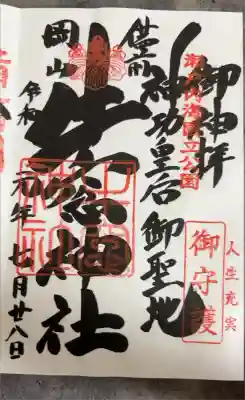 御神拝
瀬戸内海国立公園
人生充実
御守護
備前
神功皇后御聖地
牛窓神社
岡山
令和元年 月廿八日